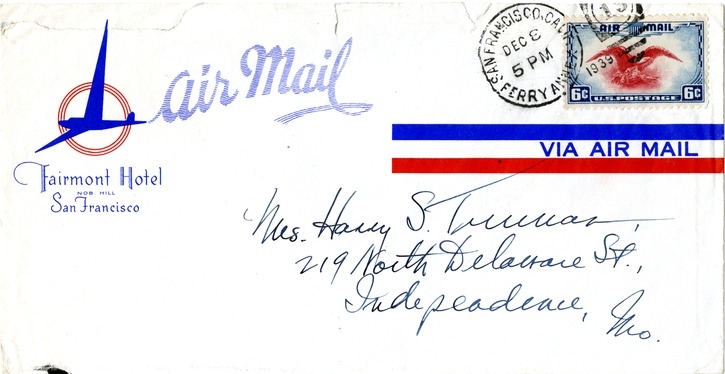 Air Mail
SAN FRANCISCO, CAL.
DEC 8
5 PM
1939
FERRY ANNEX
13
AIR MAIL
6¢ U.S. POSTAGE 6¢
VIA AIR MAIL
Fairmont Hotel
NOB HILL
San Francisco
Mrs. Harry S. Truman,
219 North Delaware St.,
Independence,
Mo.